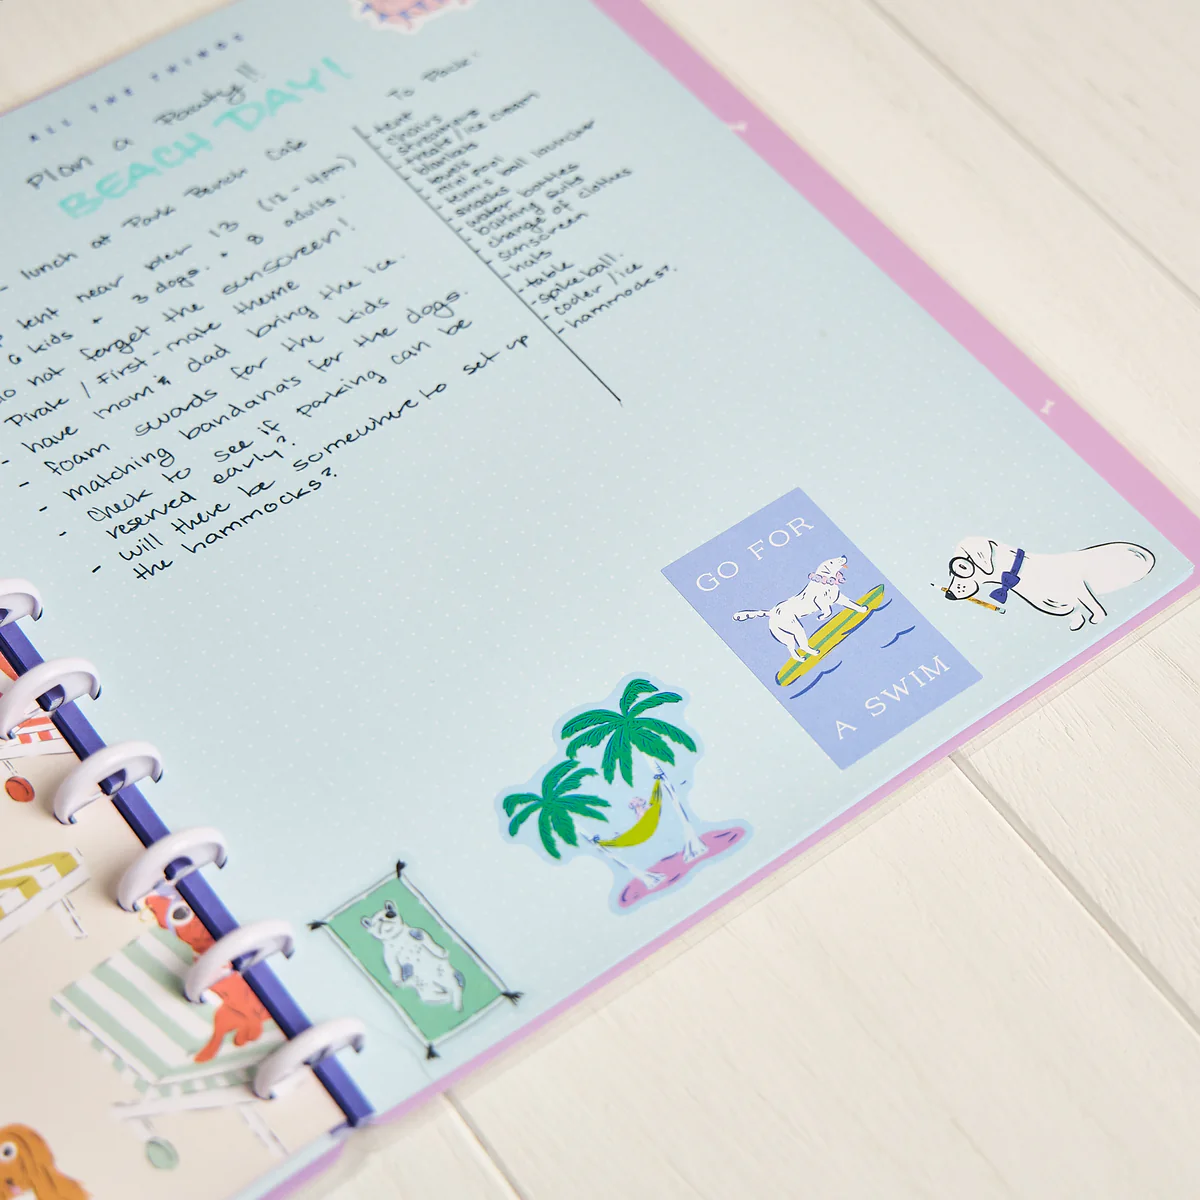 ALL THE THINGS
Plan a Pawty!!
BEACH DAY!
- lunch at Park Bench Cafe
tent near pier 13 (12-4pm)
6 kids + 3 dogs. + 8 adults.
not forget the sunscreen!
Pirate / First-mate theme
- have mom & dad bring the ice.
- foam swords for the kids
- matching bandana's for the dogs.
- Check to see if parking can be
reserved early?
- will there be somewhere to set up
the hammocks?
To Pack:
- tent
- chairs
- / ice cream
- towels
- mini pool
- tennis ball launcher
- snacks
- water bottles
- bathing suits
- change of clothes
- sunscreen
- hats
- table
- spikeball.
- cooler / ice
- hammocks?
GO FOR
A SWIM